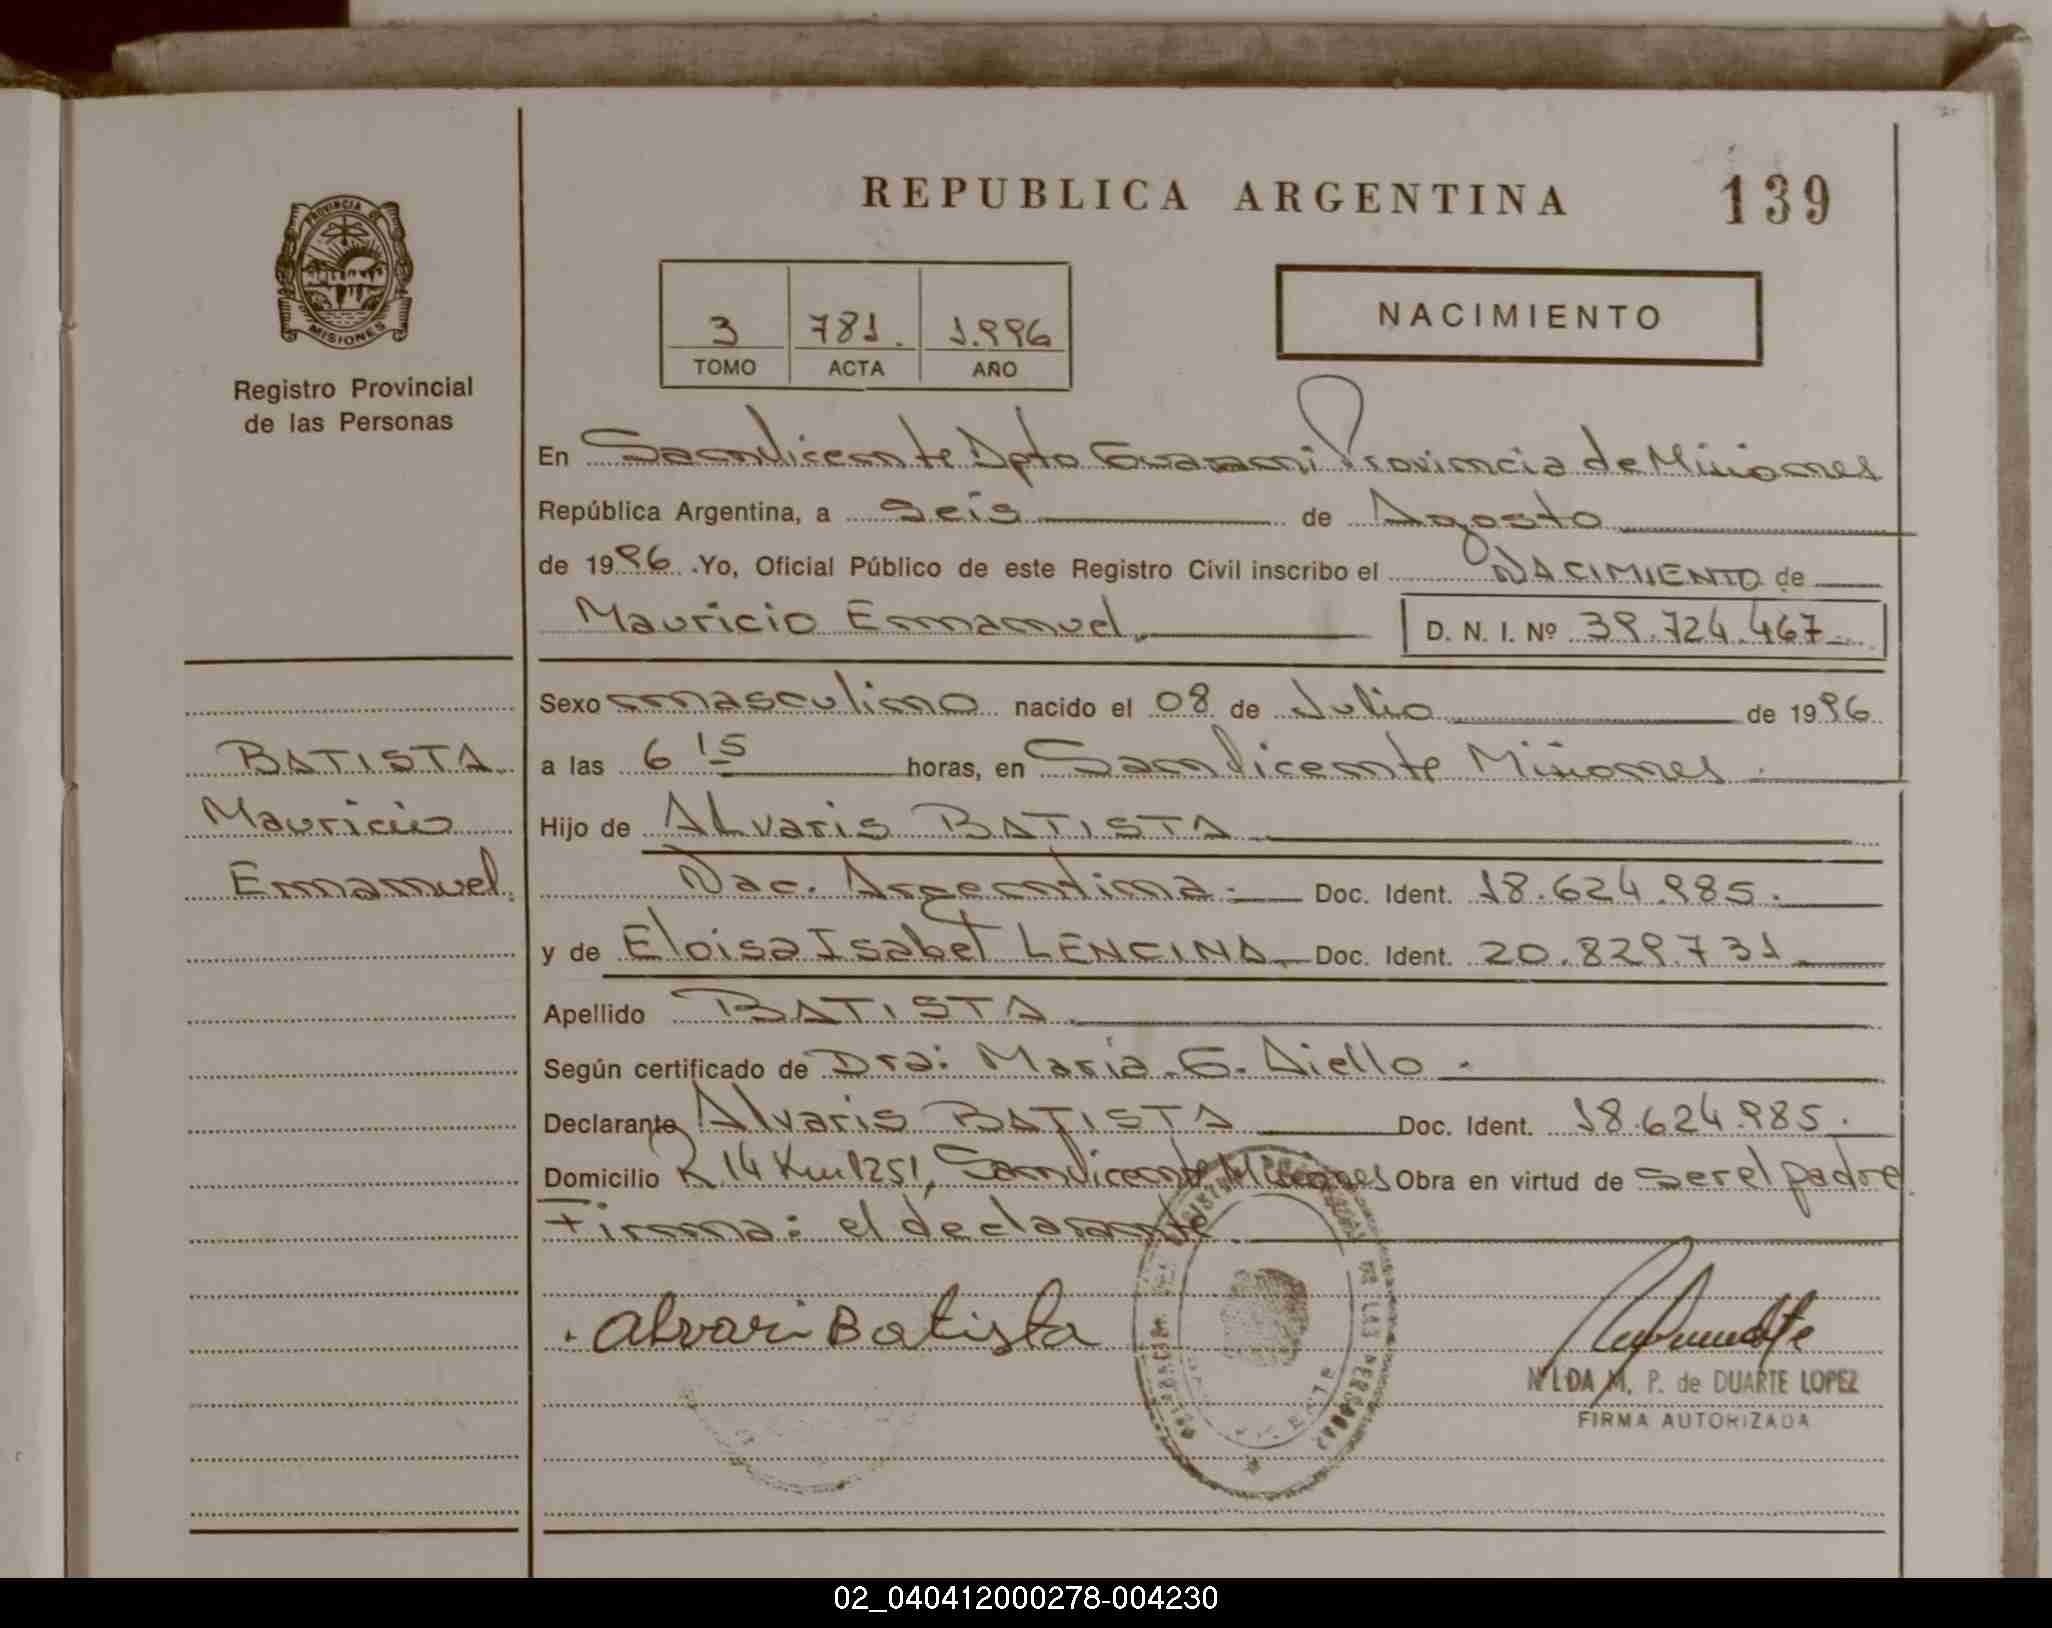 REPUBLICA ARGENTINA 139
PROVINCIA DE
MISIONES
Registro Provincial
de las Personas
3 781. 1.996
TOMO ACTA AÑO
NACIMIENTO
En San Vicente Dpto Guaraní Provincia de Misiones
República Argentina, a seis de Agosto
de 1996. Yo, Oficial Público de este Registro Civil inscribo el NACIMIENTO de
Mauricio Emmanuel. D. N. I. Nº 39.724.467
Sexo masculino nacido el 08 de Julio de 1996
a las 6 15 horas, en San Vicente Misiones.
Hijo de Alvaris BATISTA
Nac. Argentina. Doc. Ident. 18.624.985.
y de Eloisa Isabel LENCINA Doc. Ident. 20.829.731
Apellido BATISTA
Según certificado de Dra: María G. Aiello.
Declarante Alvaris BATISTA Doc. Ident. 18.624.985.
Domicilio R. 14 Km 1251, San Vicente Misiones Obra en virtud de ser el padre
Firma: el declarante
BATISTA
Mauricio
Emmanuel.
Alvari Batista
NILDA M. P. de DUARTE LOPEZ
FIRMA AUTORIZADA
DE LAS PERSONAS
02_040412000278-004230